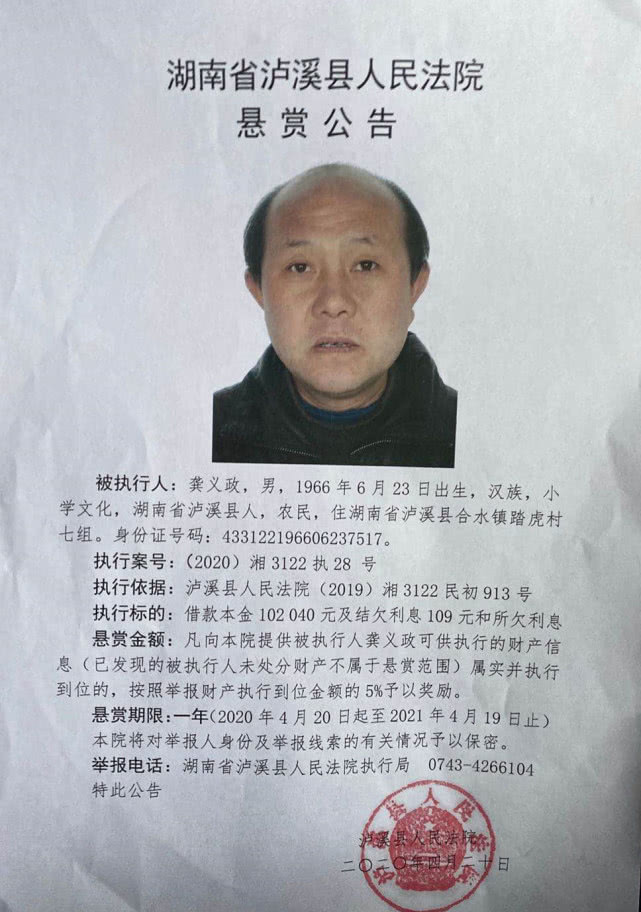 湖南省泸溪县人民法院
悬赏公告
被执行人：龚义政，男，1966年6月23日出生，汉族，小
学文化，湖南省泸溪县人，农民，住湖南省泸溪县合水镇踏虎村
七组。身份证号码：433122196606237517。
执行案号：（2020）湘3122执28 号
执行依据：泸溪县人民法院（2019）湘3122民初913号
执行标的：借款本金102 040元及结欠利息109元和所欠利息
悬赏金额：凡向本院提供被执行人龚义政可供执行的财产信
息（已发现的被执行人未处分财产不属于悬赏范围）属实并执行
到位的，按照举报财产执行到位金额的5%予以奖励。
悬赏期限：一年（2020年4月20日起至2021年4月19日止）
本院将对举报人身份及举报线索的有关情况予以保密。
举报电话：湖南省泸溪县人民法院执行局 0743-4266104
特此公告
泸溪县人民法院
二〇二〇年四月二十日